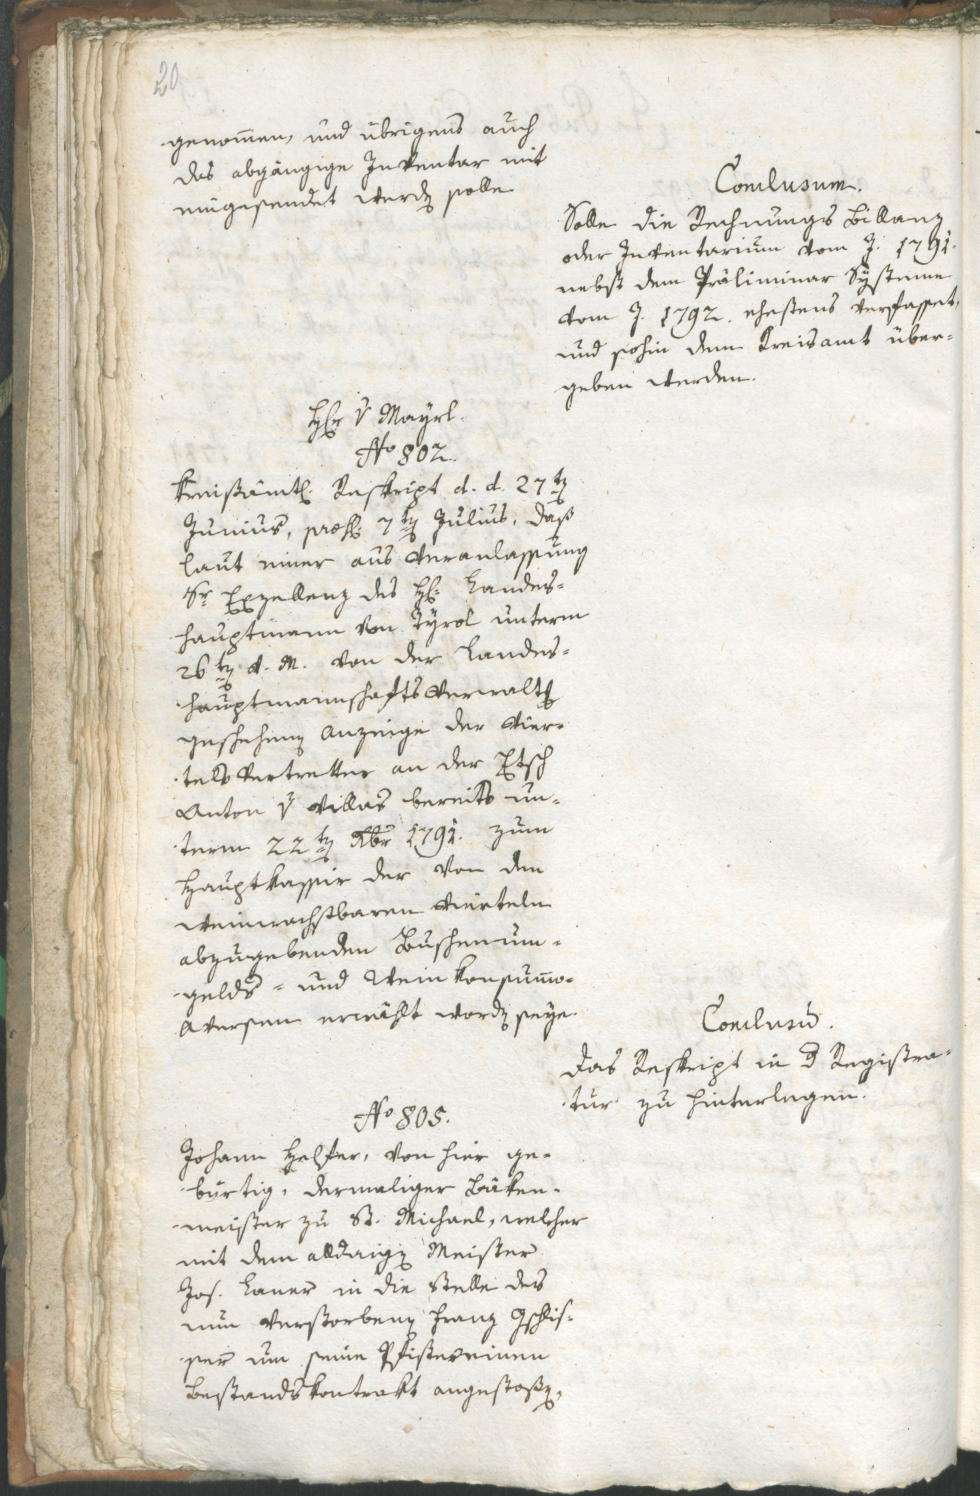 20
genom̅en, und übrigens auch
das abgängige Inventar mit
eingesendet werdn solle
Conclusum.
Solle die Rechnungs Billanz
oder Inventarium vom J. 1791.
nebst dem Präliminar Systeme
vom J. 1792. ehestens verfasset,
und sohin dem Kreisamt über-
geben werden.
H. v Mayrl.
No 802.
Kreißämtl. Reskript d. d. 27tn
Junius, praes. 7tn Julius, daß
laut einer aus Veranlassung
Sr Exzellenz des H. Landes-
hauptmann von Tyrol unterm
26tn d. M. von der Landes-
hauptmannschafts Verwaltg
geschehenen Anzeige der Vier-
tels Vertretter an der Etsch
Anton v Villas bereits un-
term 22tn Xbr 1791. zum
Hauptkassir der von den
weinwachstbaren Vierteln
abzugebenden Buschenum-
gelds- und Weinkonsum̅o-
Aversen erwählt wordn seye.
Conclusū.
Das Reskript in d Registra-
tur zu hinterlegen.
No 805.
Johann Helfer, von hier ge-
bürtig, dermaliger Bäken-
meister zu St. Michael, welcher
mit dem alldaign Meister
Jos. Laner in die Stelle des
nun verstorbenen Franz Gschlis-
ser um seine Pfistereinen
Bestandskontrakt angestoßn,